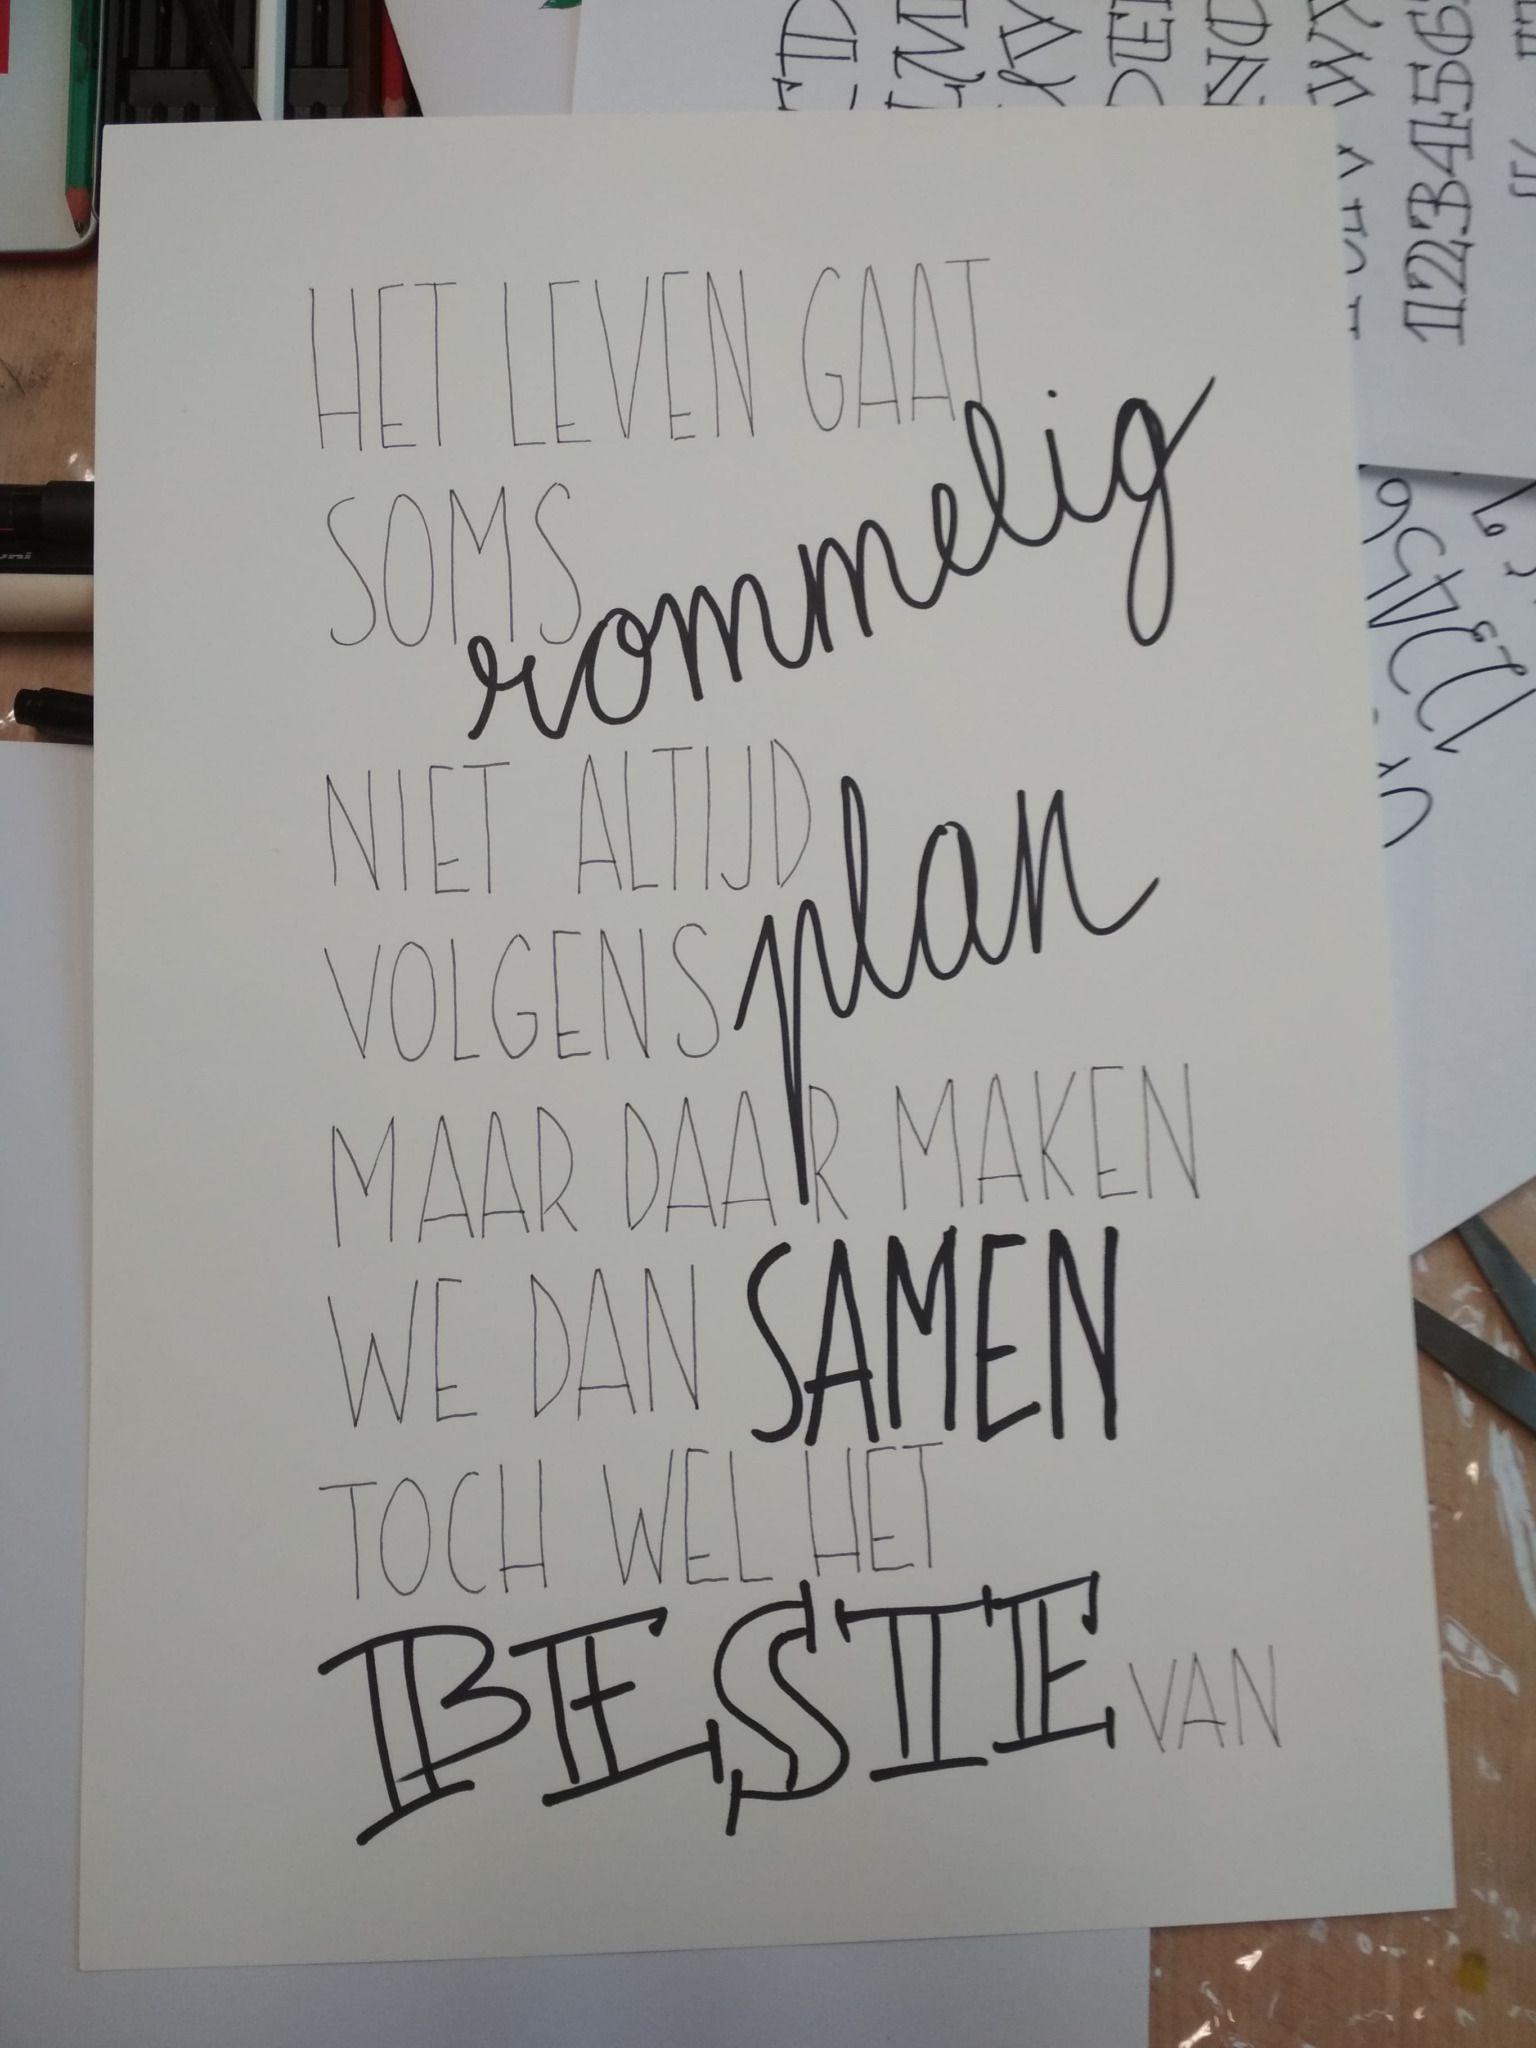 HET LEVEN GAAT
SOMS rommelig
NIET ALTIJD
VOLGENS plan
MAAR DAAR MAKEN
WE DAN SAMEN
TOCH WEL HET
BESTE VAN
uni